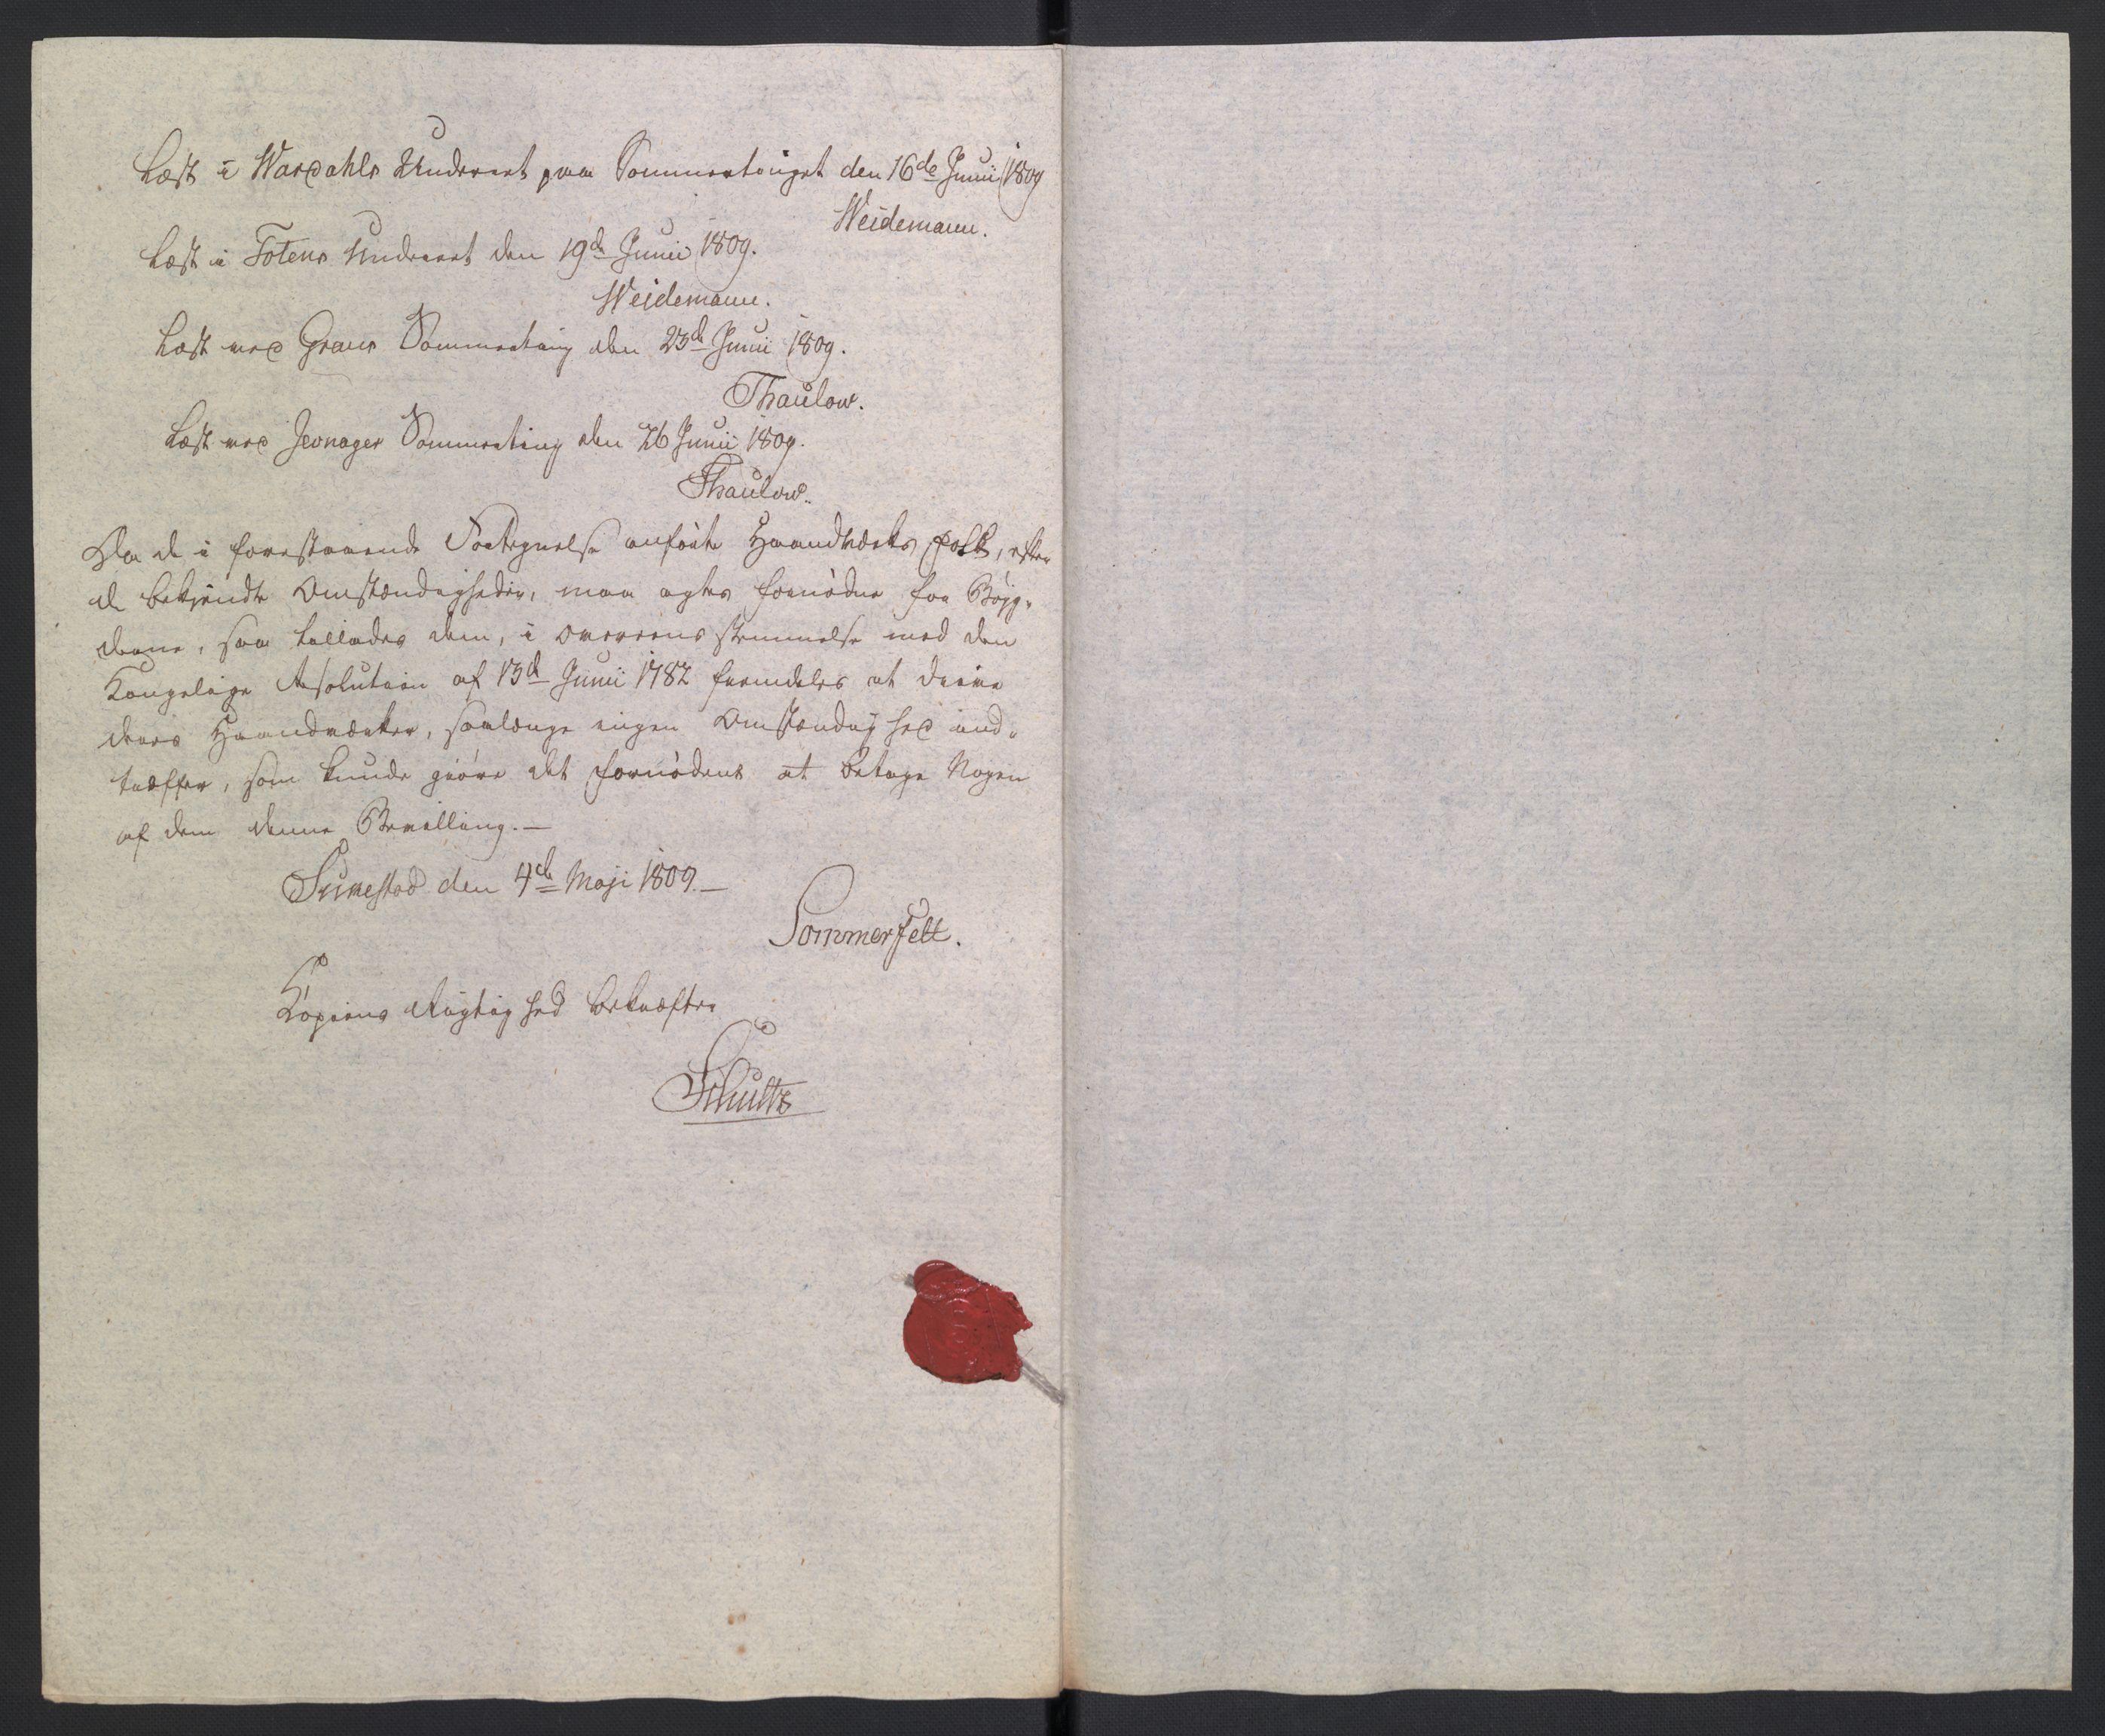 Læst i Wardahls Underret paa Sommertinget den 16de Junii 1809
Weidemann.
Læst i Totens Underret den 19de Junii 1809.
Weidemann.
Læst ved Grans Sommerting den 23de Junii 1809.
Thaulow.
Læst ved Jevnager Sommerting den 26 Junii 1809.
Thaulow.
Da de i forestaaende Fortegnelse anførte Haandværks Folk, efter
de bekjendte Omstændigheder, maa agtes fornødne for Bøjg-
derne, saa tillades dem, i Overeensstemmelse med den
Kongelige Resolution af 13de Junii 1782 fremdeles at drive
deres Haandværker, saalænge ingen Omstændighed ind-
træffer, som kunde giøre det fornødent at betage Nogen
af dem denne Bevilling.—
Sukestad den 4de Maji 1809.—
Sommerfelt.
Copiens Rigtighed bekræfter
Schultz